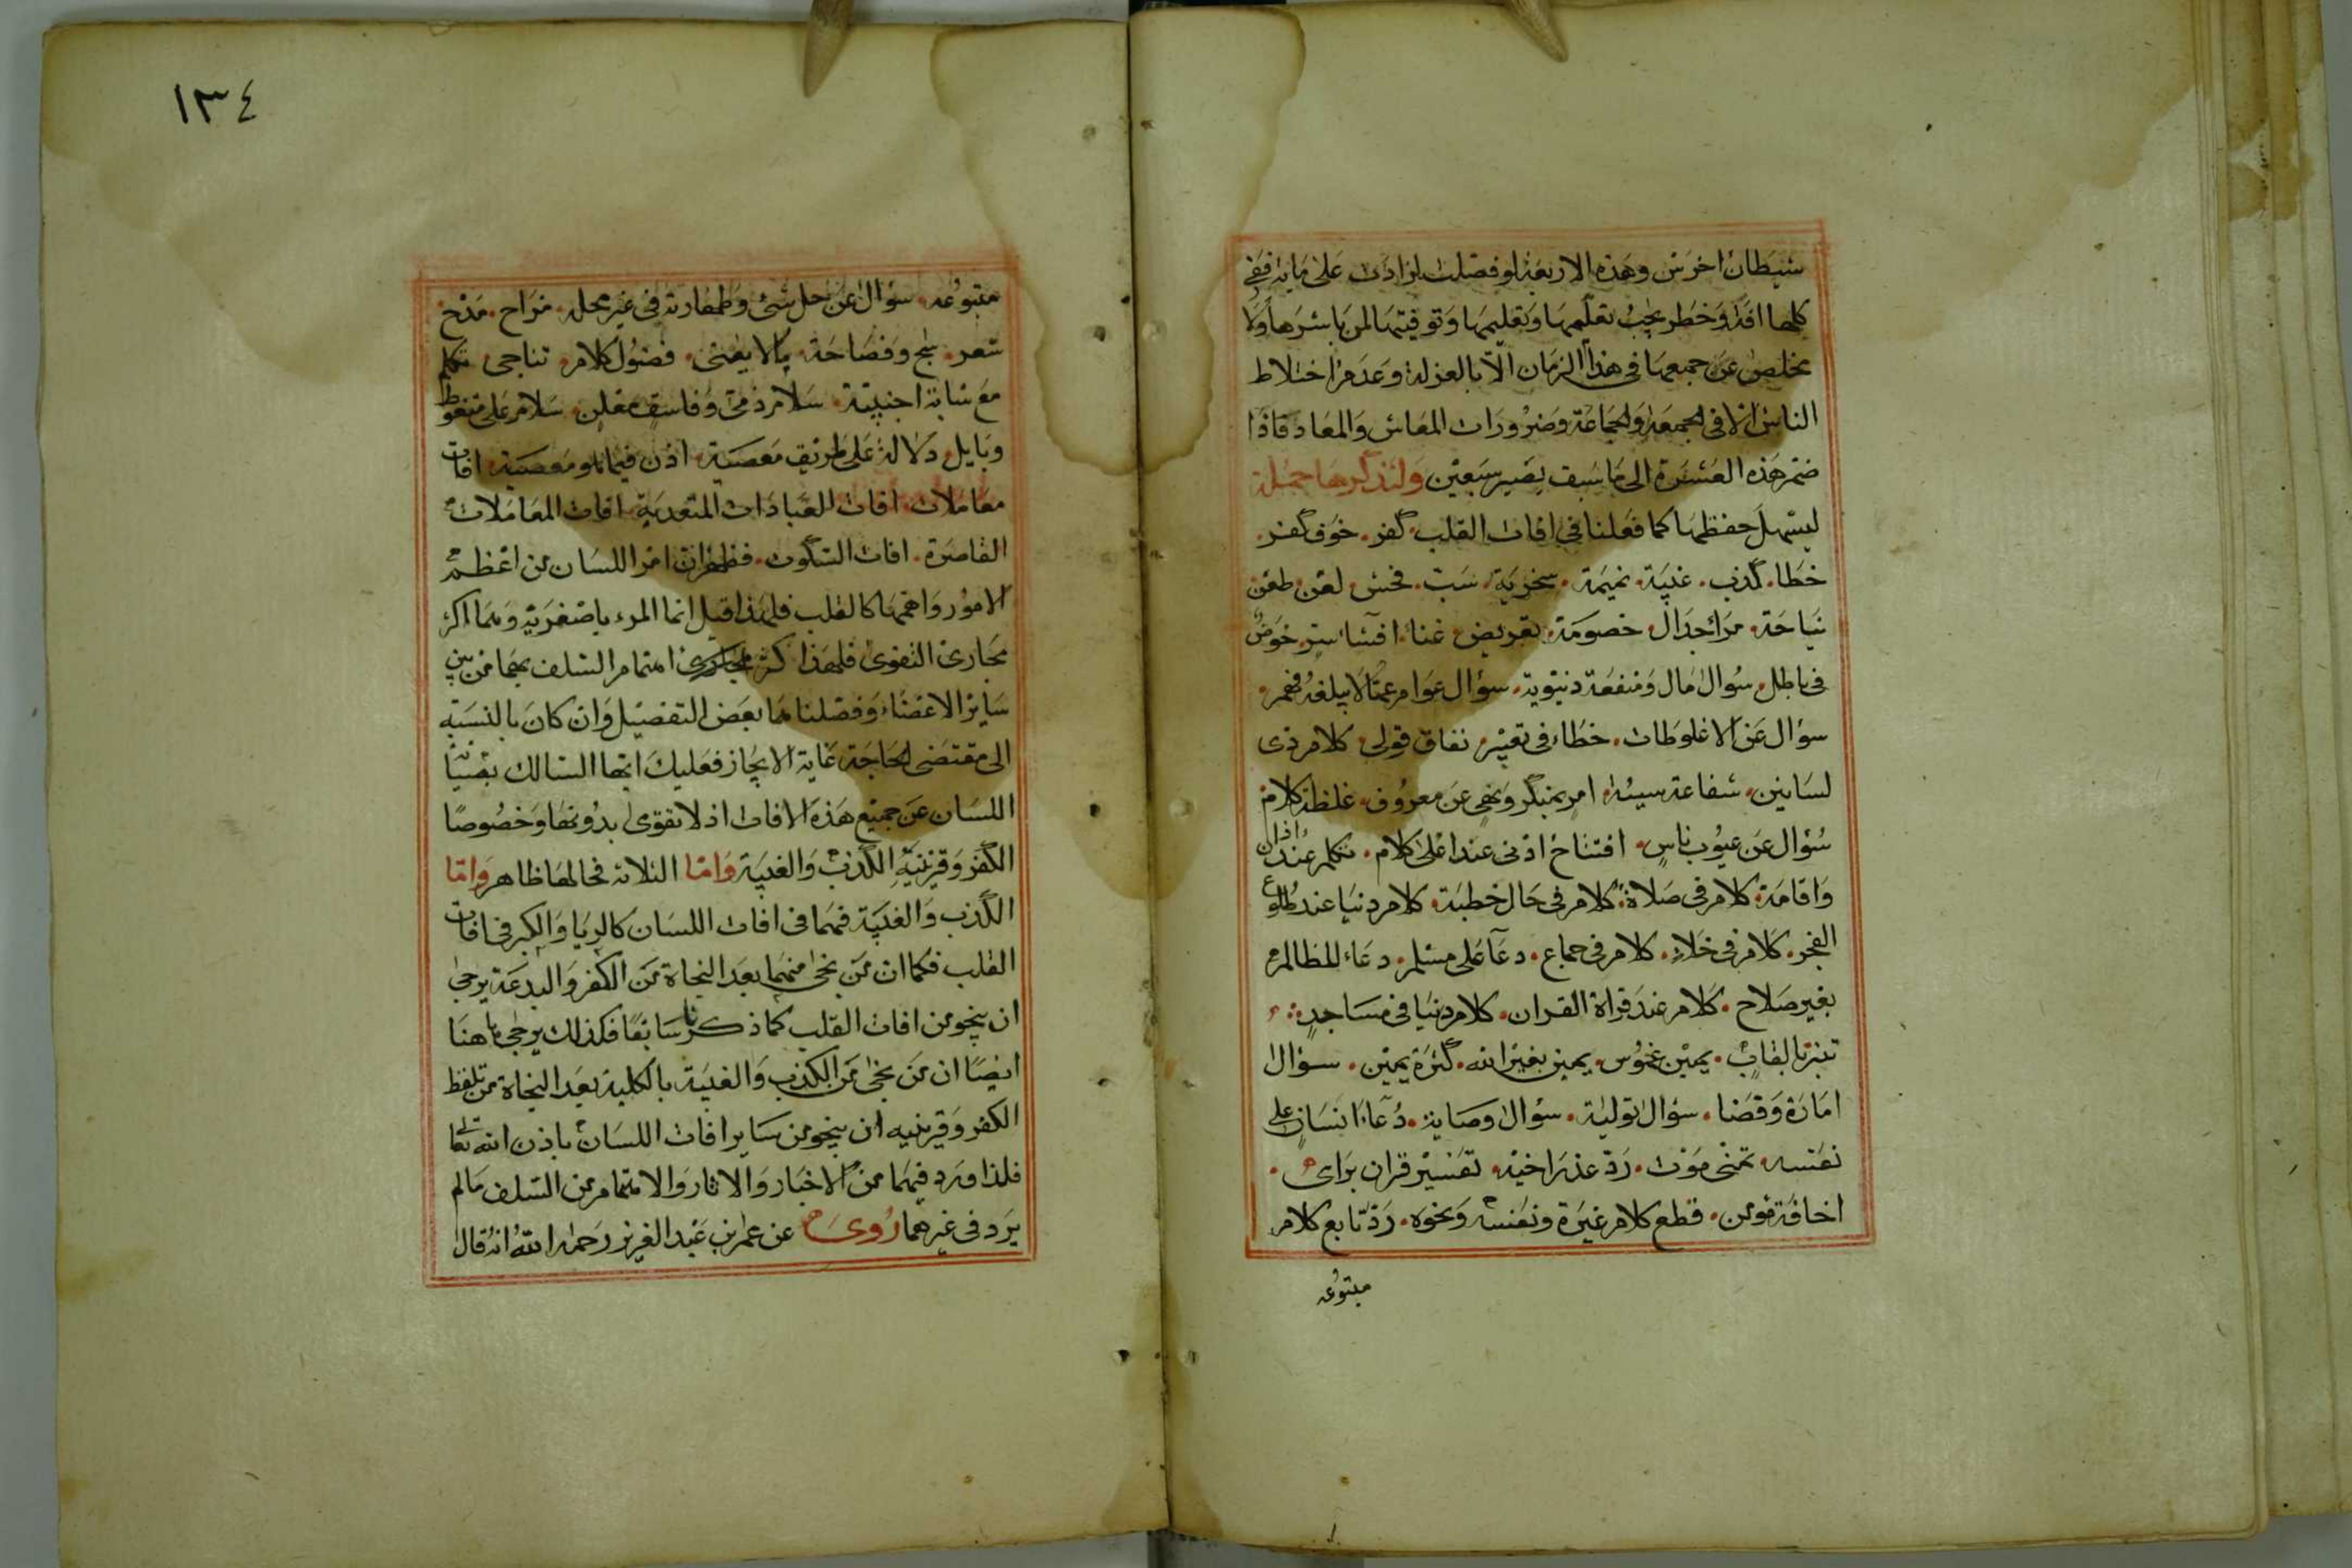 شيطان اخرس وهذه الاربعة لو فصلت لزادت على مائة ففي
كلها افة وخطر يجب تعلمها وتعليمها وتوقيتها لمن باشرها ولا
يخلص عن جميعها في هذا الزمان الا بالعزلة وعدم اختلاط
الناس الا في الجمعة والجماعة وضرورات المعاش والمعاد فاذا
ضم هذه العشرة الى ما سبق يصير سبعين ولنذكرها جملة
ليسهل حفظها كما فعلنا في افات القلب كفر. خوف كفر.
خطا. كذب. غيبة. نميمة. سخرية. سب. فحش لعن طعن
نياحة. مراء جدال. خصومة. تعريض غناء افشا سر. خوض
في باطل. سؤال مال ومنفعة دنيوية. سؤال عوام عما لا يبلغه فهمهم.
سؤال عن الاغلوطات. خطاء في تعبير. نفاق قولي. كلام ذي
لسانين. شفاعة سيئة. امر بمنكر ونهي عن معروف. غلظة كلام
سؤال عن عيوب ناس. افتتاح ادنى عند اعلى كلام. تكلم عند اذان
واقامة. كلام في صلاة. كلام في حال خطبة. كلام دنيا عند طلوع
الفجر. كلام في خلاء. كلام في جماع. دعا على مسلم. دعاء للظالم
بغير صلاح. كلام عند قراة القران. كلام دنيا في مساجد.
تنبز بالقاب. يمين غموس. يمين بغير الله. كثرة يمين. سؤال
امارة وقضا. سؤال تولية. سؤال وصاية. دعاء انسان على
نفسه تمني موت. رد عذر اخيه. تفسير قران براى.
اخافة مومن. قطع كلام غيره ونفسه ونحوه. رد تابع كلام
متبوعه
١٣٤
متبوعه. سؤال عن حل شئ وطهارته في غير محله. مزاح. مدح
شعر. سجع وفصاحة. ما لا يعنى. فضول كلام. تناجى تكلم
مع شابة اجنبية. سلام ذمى وفاسق معلن. سلام على متغوط
وبايل. دلالة على طريق معصية. اذن فيما هو معصية. افات
معاملات. افات العبادات المتعدية. افات المعاملات
القاصرة. افات السكوت. فظهر ان امر اللسان من اعظم
الامور واهمها كالقلب فلهذا قيل انما المرء باصغريه وهما اكبر
مجارى التقوى فلهذا كثر اهتمام السلف بهما من بين
ساير الاعضاء وفصلنا هما بعض التفصيل وان كان بالنسبة
الى مقتضى الحاجة غاية الايجاز فعليك ايها السالك بصيانة
اللسان عن جميع هذه الافات اذ لا تقوى بدونها وخصوصا
الكفر وقرينيه الكذب والغيبة واما الثلاثة فحالها ظاهر واما
الكذب والغيبة فهما في افات اللسان كالريا والكبر في افات
القلب فكما ان من نجى منهما بعد النجاة من الكفر والبدعة يرجى
ان ينجو من افات القلب كما ذكرنا سابقا فكذلك يرجى هاهنا
ايضا ان من نجى من الكذب والغيبة بالكلية بعد النجاة من تلفظ
الكفر وقرينيه ان ينجو من ساير افات اللسان باذن الله تعالى
فلذا ورد فيهما من الاخبار والاثار والاهتمام من السلف ما لم
يرد في غيرهما روى عن عمر بن عبد العزيز رحمه الله انه قال